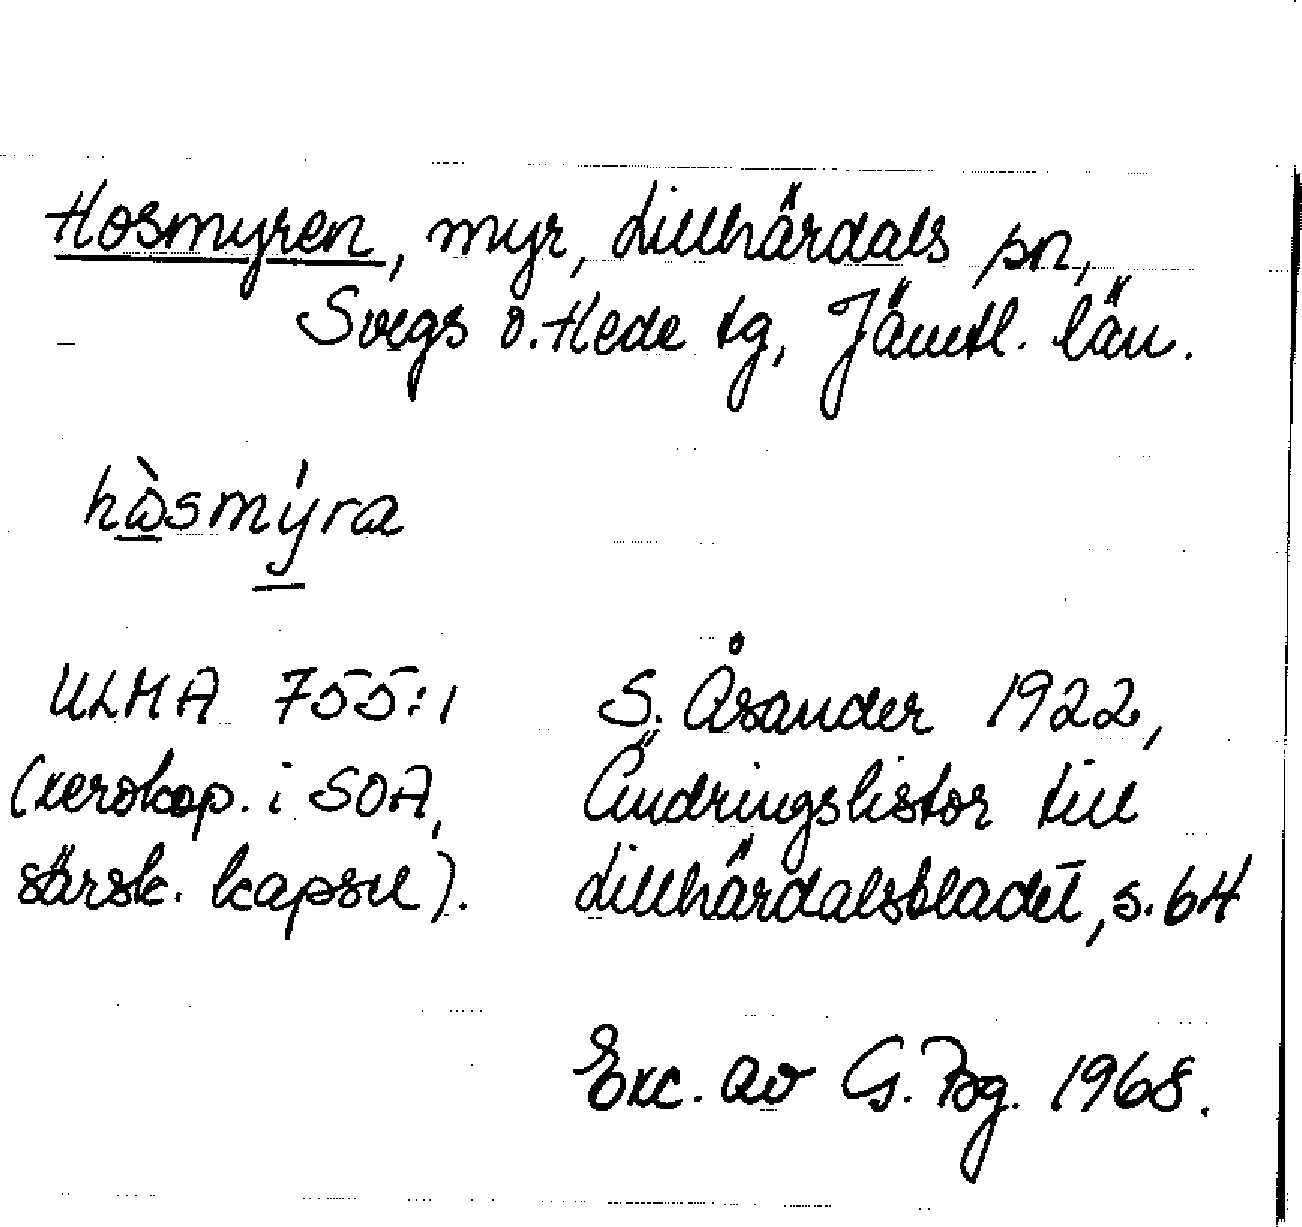 Hosmyren, myr, Lillhärdals sn,
Svegs o. Hede tg, Jämtl. län.
hòsmýra
ULMA 755:1
(xerokop. i SOA,
särsk. kapsel).
S. Åsander 1922,
Ändringslistor till
Lillhärdalsbladet, s. 64
Exc. av G. Bg. 1968.